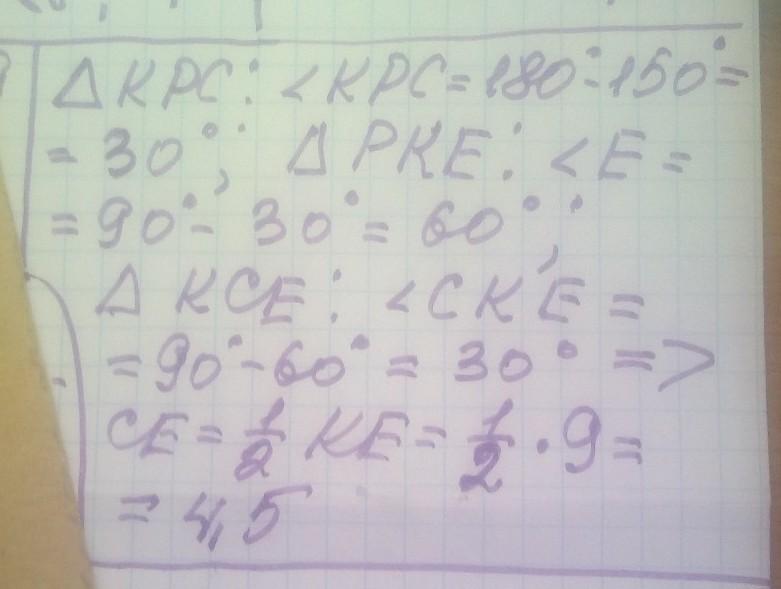 Δ KPC: <KPC=180°-150°=
= 30°; Δ PKE: <E =
= 90°- 30°= 60°;
Δ KCE: <CKE =
= 90°-60° = 30° =>
CE = 1/2 KE = 1/2 · 9 =
= 4,5